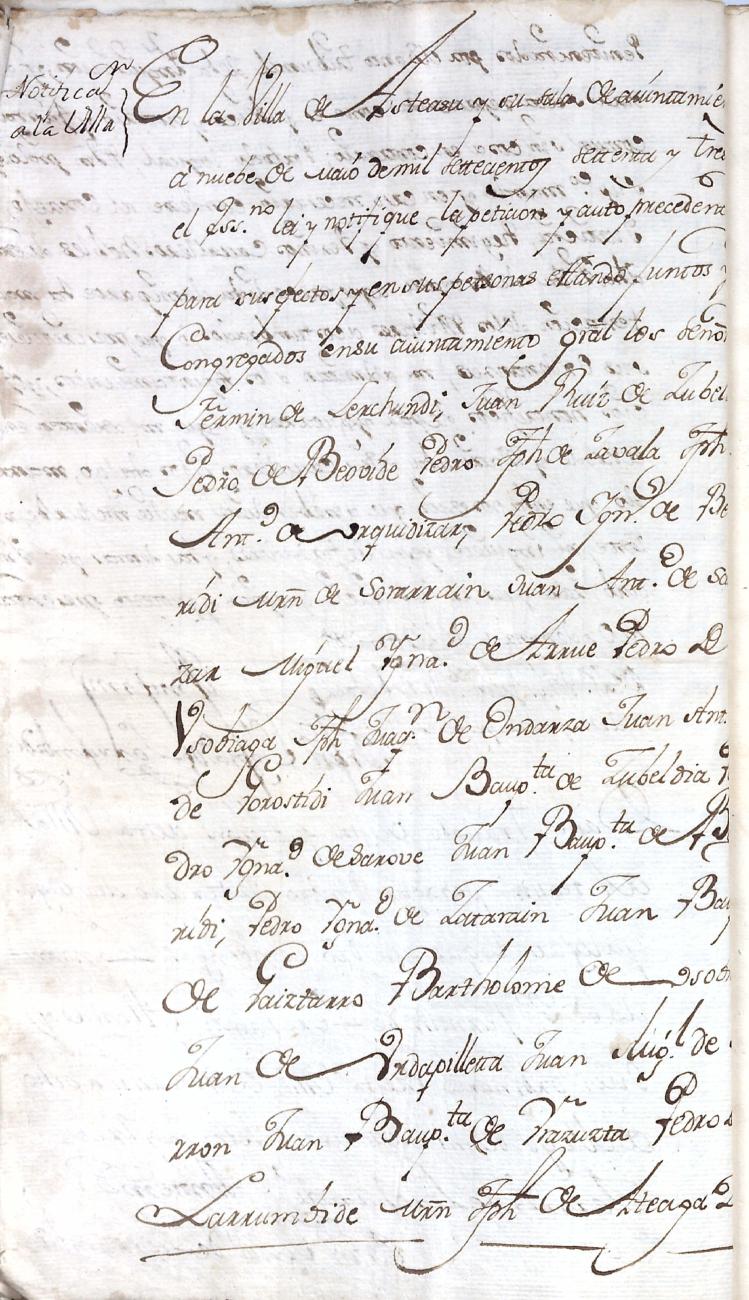 Notificaon
a la Villa
En la Villa de Asteasu y su sala de aiuntamie
a nuebe de maio de mil settecientos settenta y tres
el Ssno. lei y notifique la peticion y auto precedente
para sus efectos y en sus personas estando Juntos y
Congregados en su aiuntamiento gral los señor
Fermin de Lerchundi, Juan Ruiz de Zubel
Pedro de Beovide Pedro Jph de Zavala Jph
Antd. de Vrquidizar, Pedro Ygnd. de Be
ridi Mrñ de Sorarrain Juan Antd. de So
zar Miguel Ygnad. de Arrue Pedro D
Vsobiaga Jph Juaqn. de Ondarza Juan Ant.
de Gorostidi Juan Baupta. de Zubeldia P
dro Ygnad. de Sarove Juan Baupta. de B
ridi, Pedro Ygnad. de Latarain Juan Bau
de Gaiztarro Bartholome de Vsob
Juan de Vrdapilleta Juan Migl. de
rron Juan Baupta. de Yrazuzta Pedro
Larrumbide Mrñ Jph de Ateaga